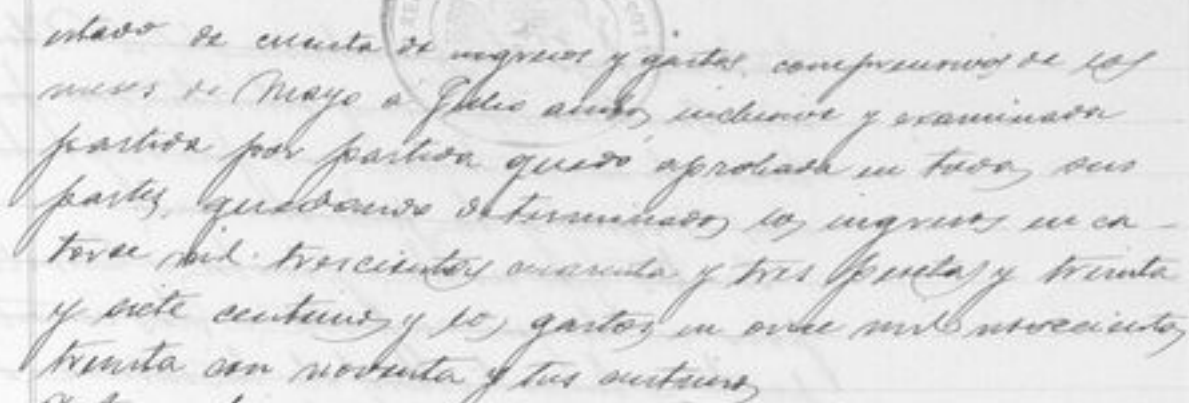 estado de cuenta de ingresos y gastos comprensivos de los
meses de Mayo a Julio ambos inclusive y examinada
partida por partida quedó aprobada en todas sus
partes, quedando determinados los ingresos en ca-
torce mil trescientas cuarenta y tres pesetas y treinta
y siete centimos y los gastos en once mil novecientas
treinta con noventa y tres centimos